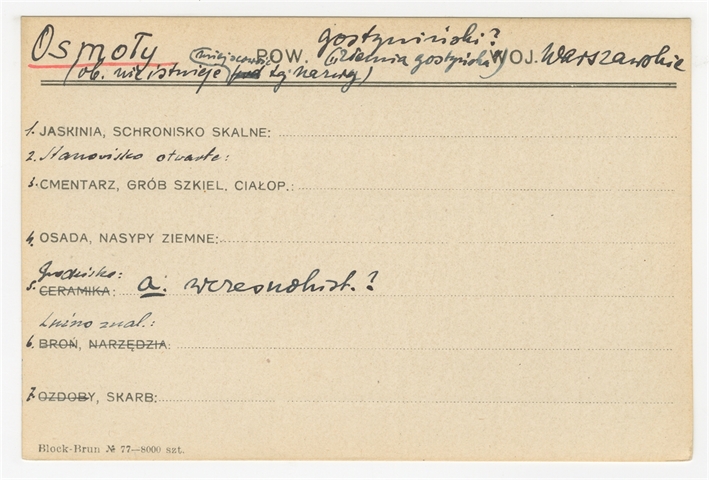 Osmoły POW. gostyniński? WOJ. Warszawskie
(ob. nie istnieje miejscowość pod tą nazwą) (ziemia gostyńska)
1. JASKINIA, SCHRONISKO SKALNE:
2. Stanowisko otwarte:
3. CMENTARZ, GRÓB SZKIEL. CIAŁOP.:
4. OSADA, NASYPY ZIEMNE:
Grodzisko:
5. CERAMIKA: a. wczesnohist.?
Luźno znal.:
6. BROŃ, NARZĘDZIA:
7. OZDOBY, SKARB:
Block-Brun № 77—8000 szt.